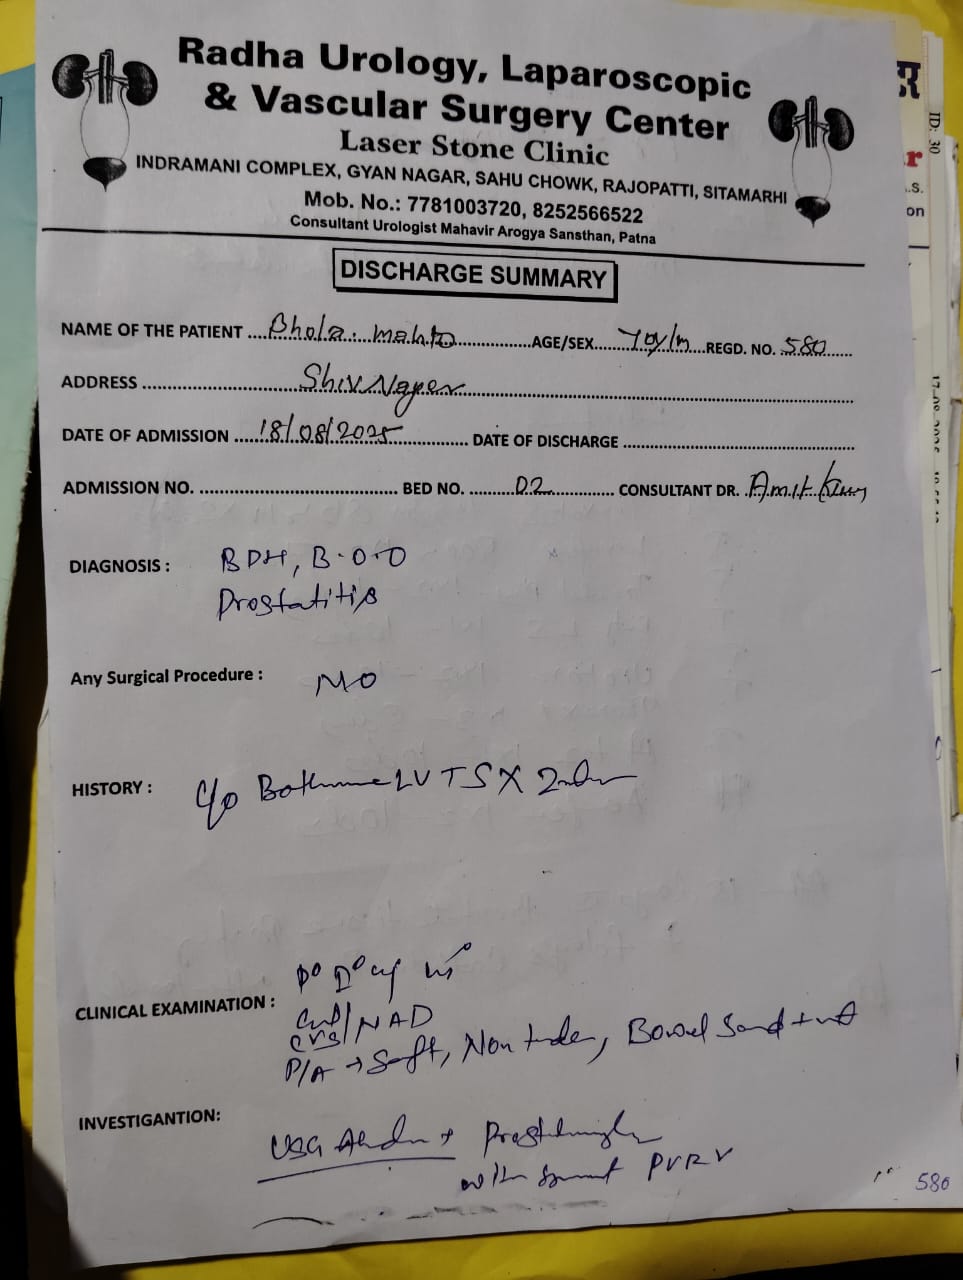 Radha Urology, Laparoscopic
& Vascular Surgery Center
Laser Stone Clinic
INDRAMANI COMPLEX, GYAN NAGAR, SAHU CHOWK, RAJOPATTI, SITAMARHI
Mob. No.: 7781003720, 8252566522
Consultant Urologist Mahavir Arogya Sansthan, Patna
DISCHARGE SUMMARY
NAME OF THE PATIENT ....Bhola mahto.... AGE/SEX....70y/m....REGD. NO. 580
ADDRESS ....Shiv Nagar....
DATE OF ADMISSION ....18/08/2025.... DATE OF DISCHARGE ....
ADMISSION NO. .... BED NO. ....02.... CONSULTANT DR. Amit
DIAGNOSIS : BPH, B.O.O
Prostatitis
Any Surgical Procedure : NO
HISTORY : c/o LUTS X
CLINICAL EXAMINATION :
NAD
P/A → Soft, Non tender, Bowel Sound +
INVESTIGANTION:
USG
with PVRV
580
ID: 30